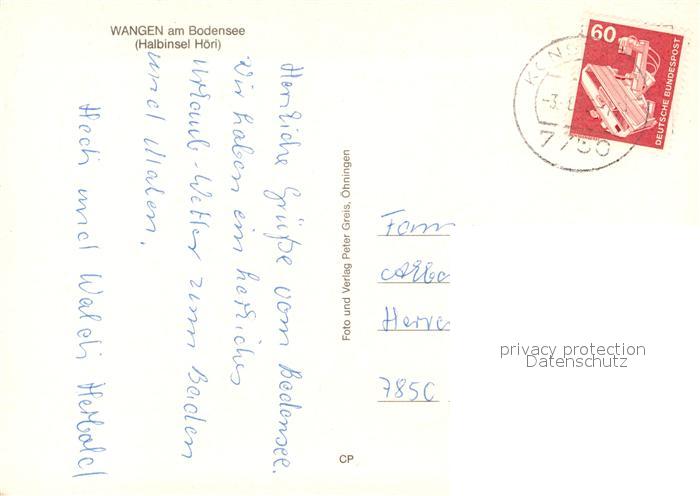 WANGEN am Bodensee
(Halbinsel Höri)
Herrliche Grüße vom Bodensee.
Wir haben ein herrliches
Urlaub-Wetter zum Baden
und Malen.
Hedi und Waldi Herbold
Foto und Verlag Peter Greis, Öhningen
CP
60
DEUTSCHE BUNDESPOST
KONS
-3.
7750
Fam
Herre
7850
privacy protection
Datenschutz